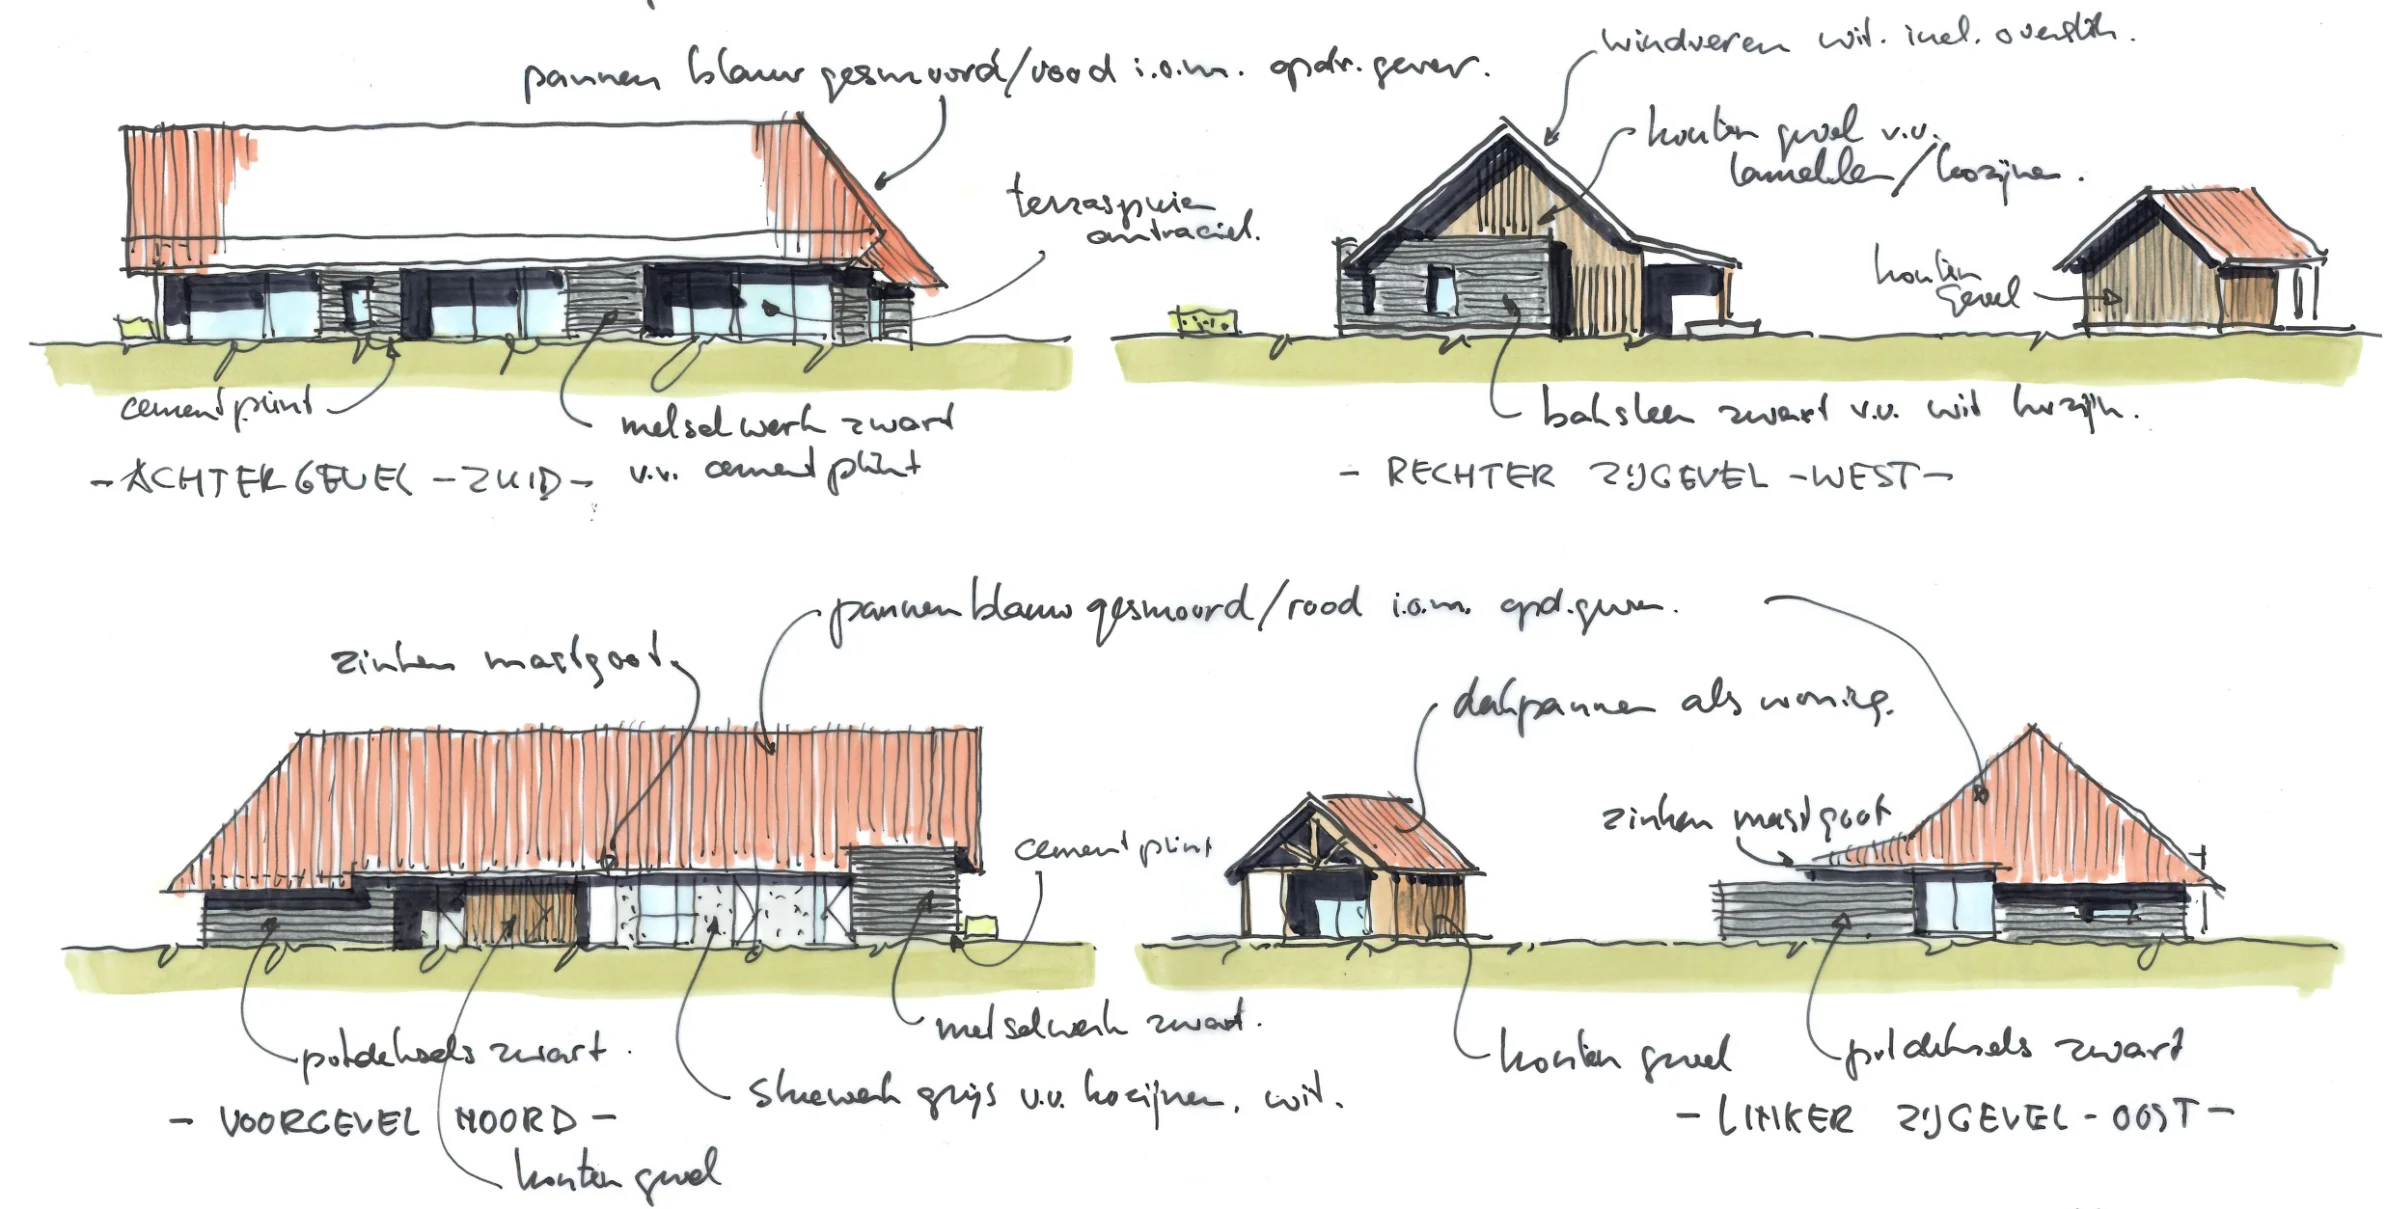 pannen blauw gesmoord/rood i.o.m. opdr.gever.
windveren wit. incl. overstek.
houten gevel v.v.
lamellen/kozijnen.
terraspuien
antraciet.
houten
gevel
cementplint
metselwerk zwart
v.v. cementplint
baksteen zwart v.v. wit kozijn.
- ACHTERGEVEL - ZUID -
- RECHTER ZIJGEVEL - WEST -
pannen blauw gesmoord/rood i.o.m. opd.gever.
zinken mastgoot.
dakpannen als woning.
zinken mastgoot
cementplint
metselwerk zwart.
potdeksels zwart.
houten gevel
potdeksels zwart
stucwerk grijs v.v. kozijnen. wit.
- VOORGEVEL NOORD -
- LINKER ZIJGEVEL - OOST -
houten gevel